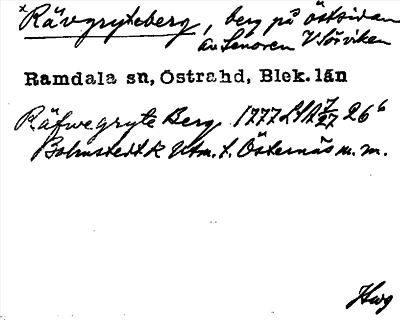 *Rävgryteberg, berg på östsidan
av Senoren V Sörviken
Ramdala sn, Östrahd, Blek. län
Räfwegryte Berg 1777 LSA 7/27 26⁶
Bolmstedt k Utm. t. Östernäs m. m.
Hwg